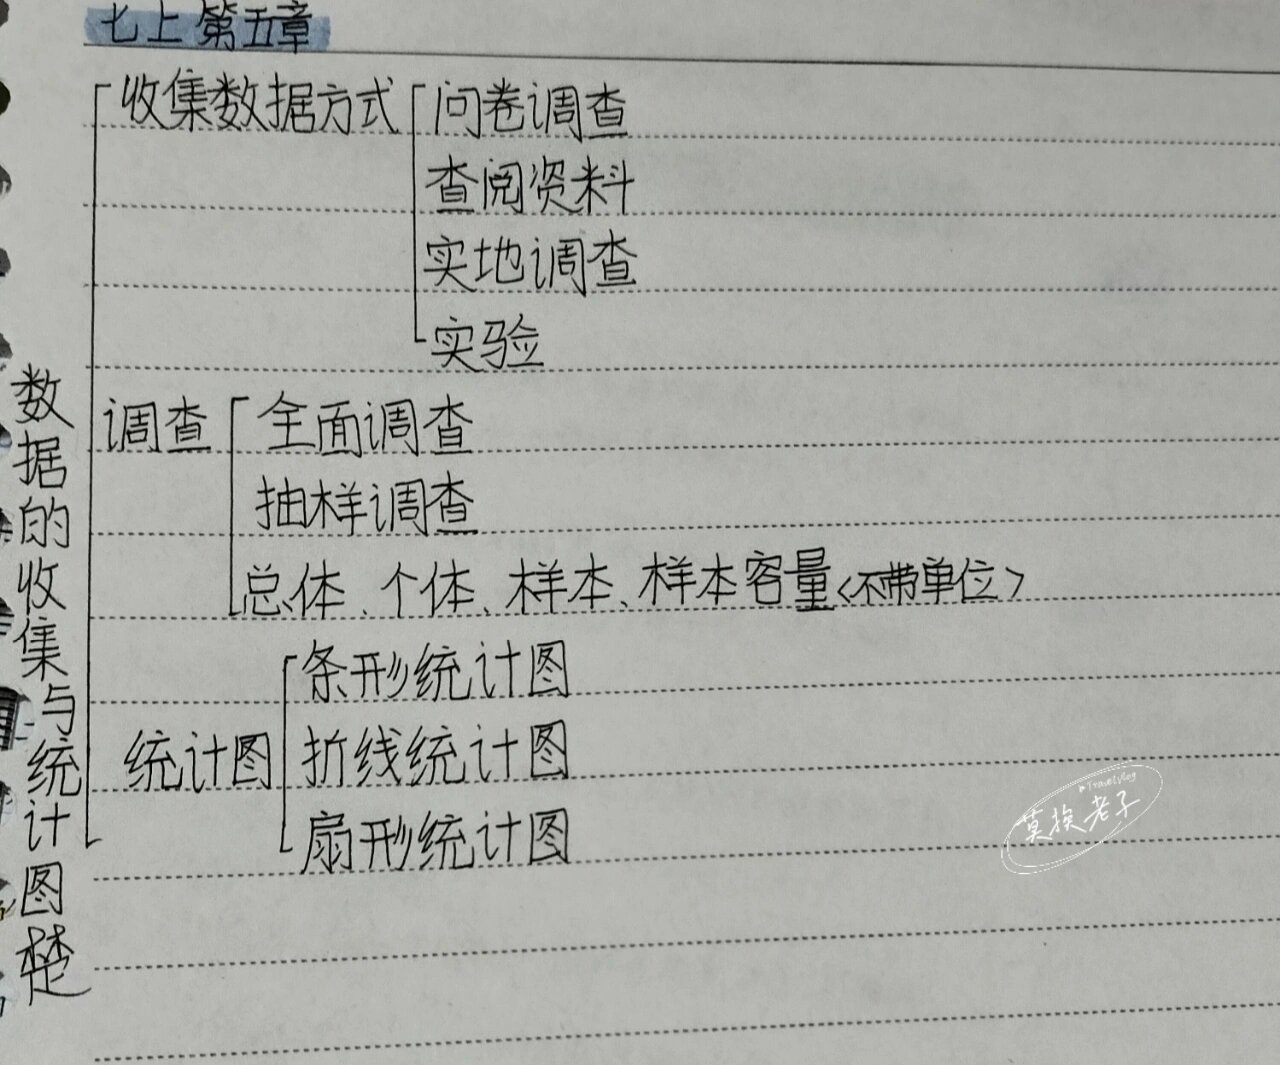 七上第五章
收集数据方式 问卷调查
查阅资料
实地调查
实验
数据的收集与统计图楚
调查 全面调查
抽样调查
总体、个体、样本、样本容量<不带单位>
统计图 条形统计图
折线统计图
扇形统计图
Travel vlog
莫挨老子